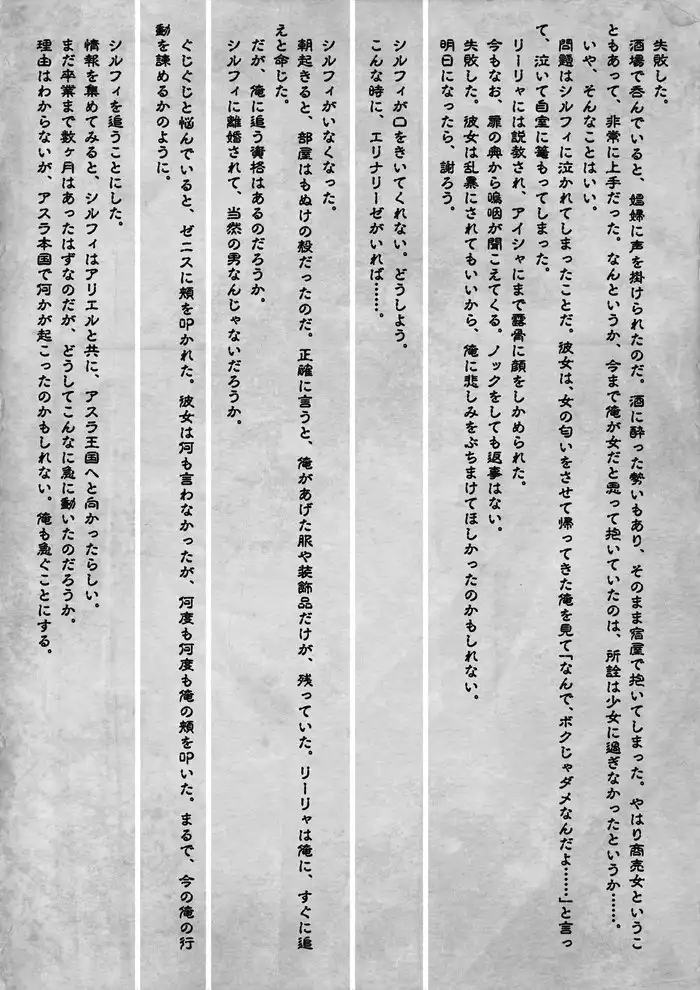 失敗した。
酒場で呑んでいると、娼婦に声を掛けられたのだ。酒に酔った勢いもあり、そのまま宿屋で抱いてしまった。やはり商売女というこ
ともあって、非常に上手だった。なんというか、今まで俺が女だと思って抱いていたのは、所詮は少女に過ぎなかったというか……。
いや、そんなことはいい。
問題はシルフィに泣かれてしまったことだ。彼女は、女の匂いをさせて帰ってきた俺を見て「なんで、ボクじゃダメなんだよ……」と言っ
て、泣いて自室に篭もってしまった。
リーリャには説教され、アイシャにまで露骨に顔をしかめられた。
今もなお、扉の奥から嗚咽が聞こえてくる。ノックをしても返事はない。
失敗した。彼女は乱暴にされてもいいから、俺に悲しみをぶちまけてほしかったのかもしれない。
明日になったら、謝ろう。
シルフィが口をきいてくれない。どうしよう。
こんな時に、エリナリーゼがいれば……。
シルフィがいなくなった。
朝起きると、部屋はもぬけの殻だったのだ。正確に言うと、俺があげた服や装飾品だけが、残っていた。リーリャは俺に、すぐに追
えと命じた。
だが、俺に追う資格はあるのだろうか。
シルフィに離婚されて、当然の男なんじゃないだろうか。
ぐじぐじと悩んでいると、ゼニスに頬を叩かれた。彼女は何も言わなかったが、何度も何度も俺の頬を叩いた。まるで、今の俺の行
動を諫めるかのように。
シルフィを追うことにした。
情報を集めてみると、シルフィはアリエルと共に、アスラ王国へと向かったらしい。
まだ卒業まで数ヶ月はあったはずなのだが、どうしてこんなに急に動いたのだろうか。
理由はわからないが、アスラ本国で何かが起こったのかもしれない。俺も急ぐことにする。